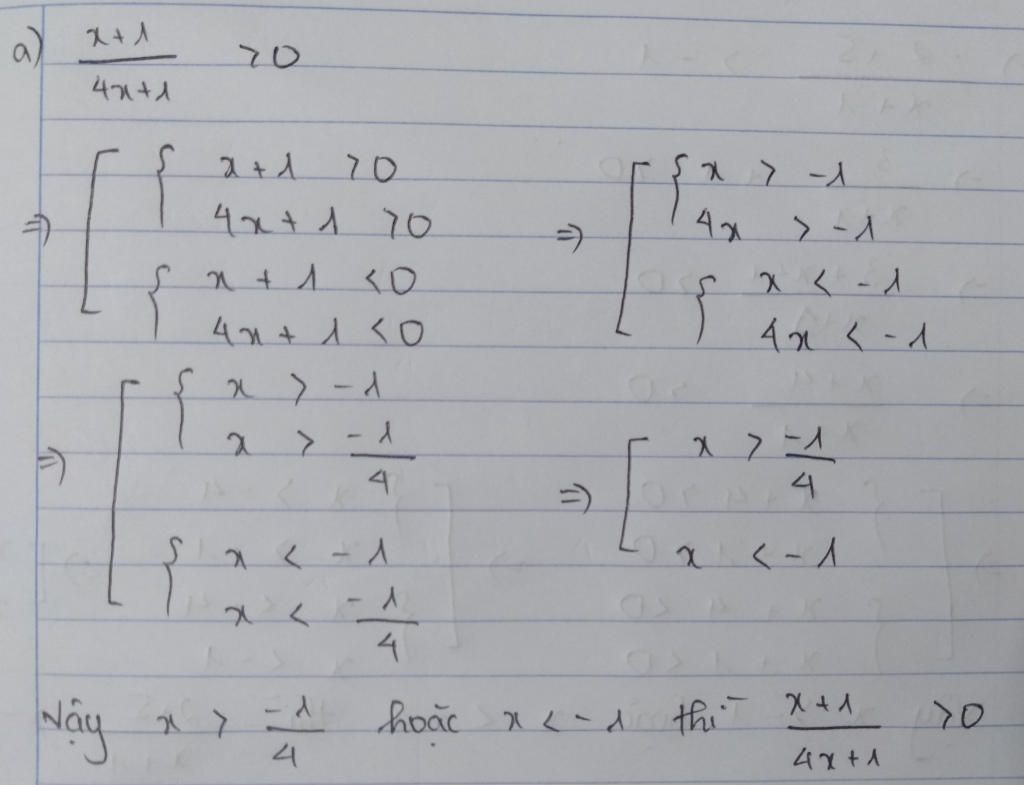 a) \frac{x+1}{4x+1} > 0
=> [ { x + 1 > 0
4x + 1 > 0
{ x + 1 < 0
4x + 1 < 0
=> [ { x > -1
4x > -1
{ x < -1
4x < -1
=> [ { x > -1
x > \frac{-1}{4}
{ x < -1
x < \frac{-1}{4}
=> [ x > \frac{-1}{4}
x < -1
Vậy x > \frac{-1}{4} hoặc x < -1 thì \frac{x+1}{4x+1} > 0